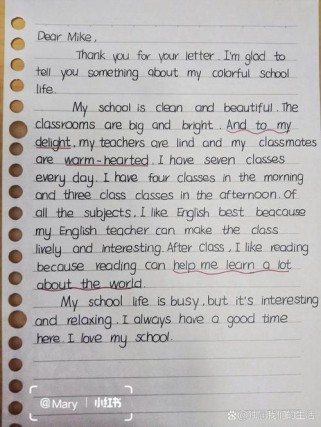 Dear Mike,
Thank you for your letter. I'm glad to
tell you something about my colorful school
life.
My school is clean and beautiful. The
classrooms are big and bright. And to my
delight, my teachers are lind and my classmates
are warm-hearted. I have seven classes
every day. I have four classes in the morning
and three class classes in the afternoon. Of
all the subjects, I like English best beacause
my English teacher can make the class
lively and interesting. After class, I like reading
because reading can help me learn a lot
about the world.
My school life is busy, but it's interesting
and relaxing. I always have a good time
here. I love my school.
@Mary 小红书